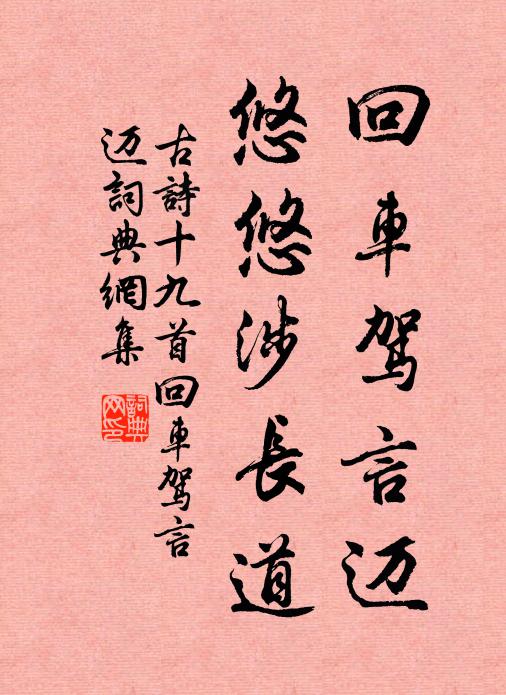 回車駕言迈
悠悠涉長道
古詩十九首回車駕言
迈詞典網集
詞典
网印